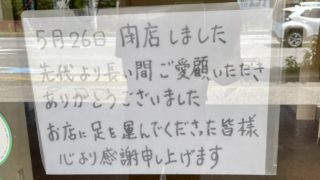 5月26日 閉店しました
先代より長い間ご愛顧いただき
ありがとうございました
お店に足を運んでくださった皆様
心より感謝申し上げます